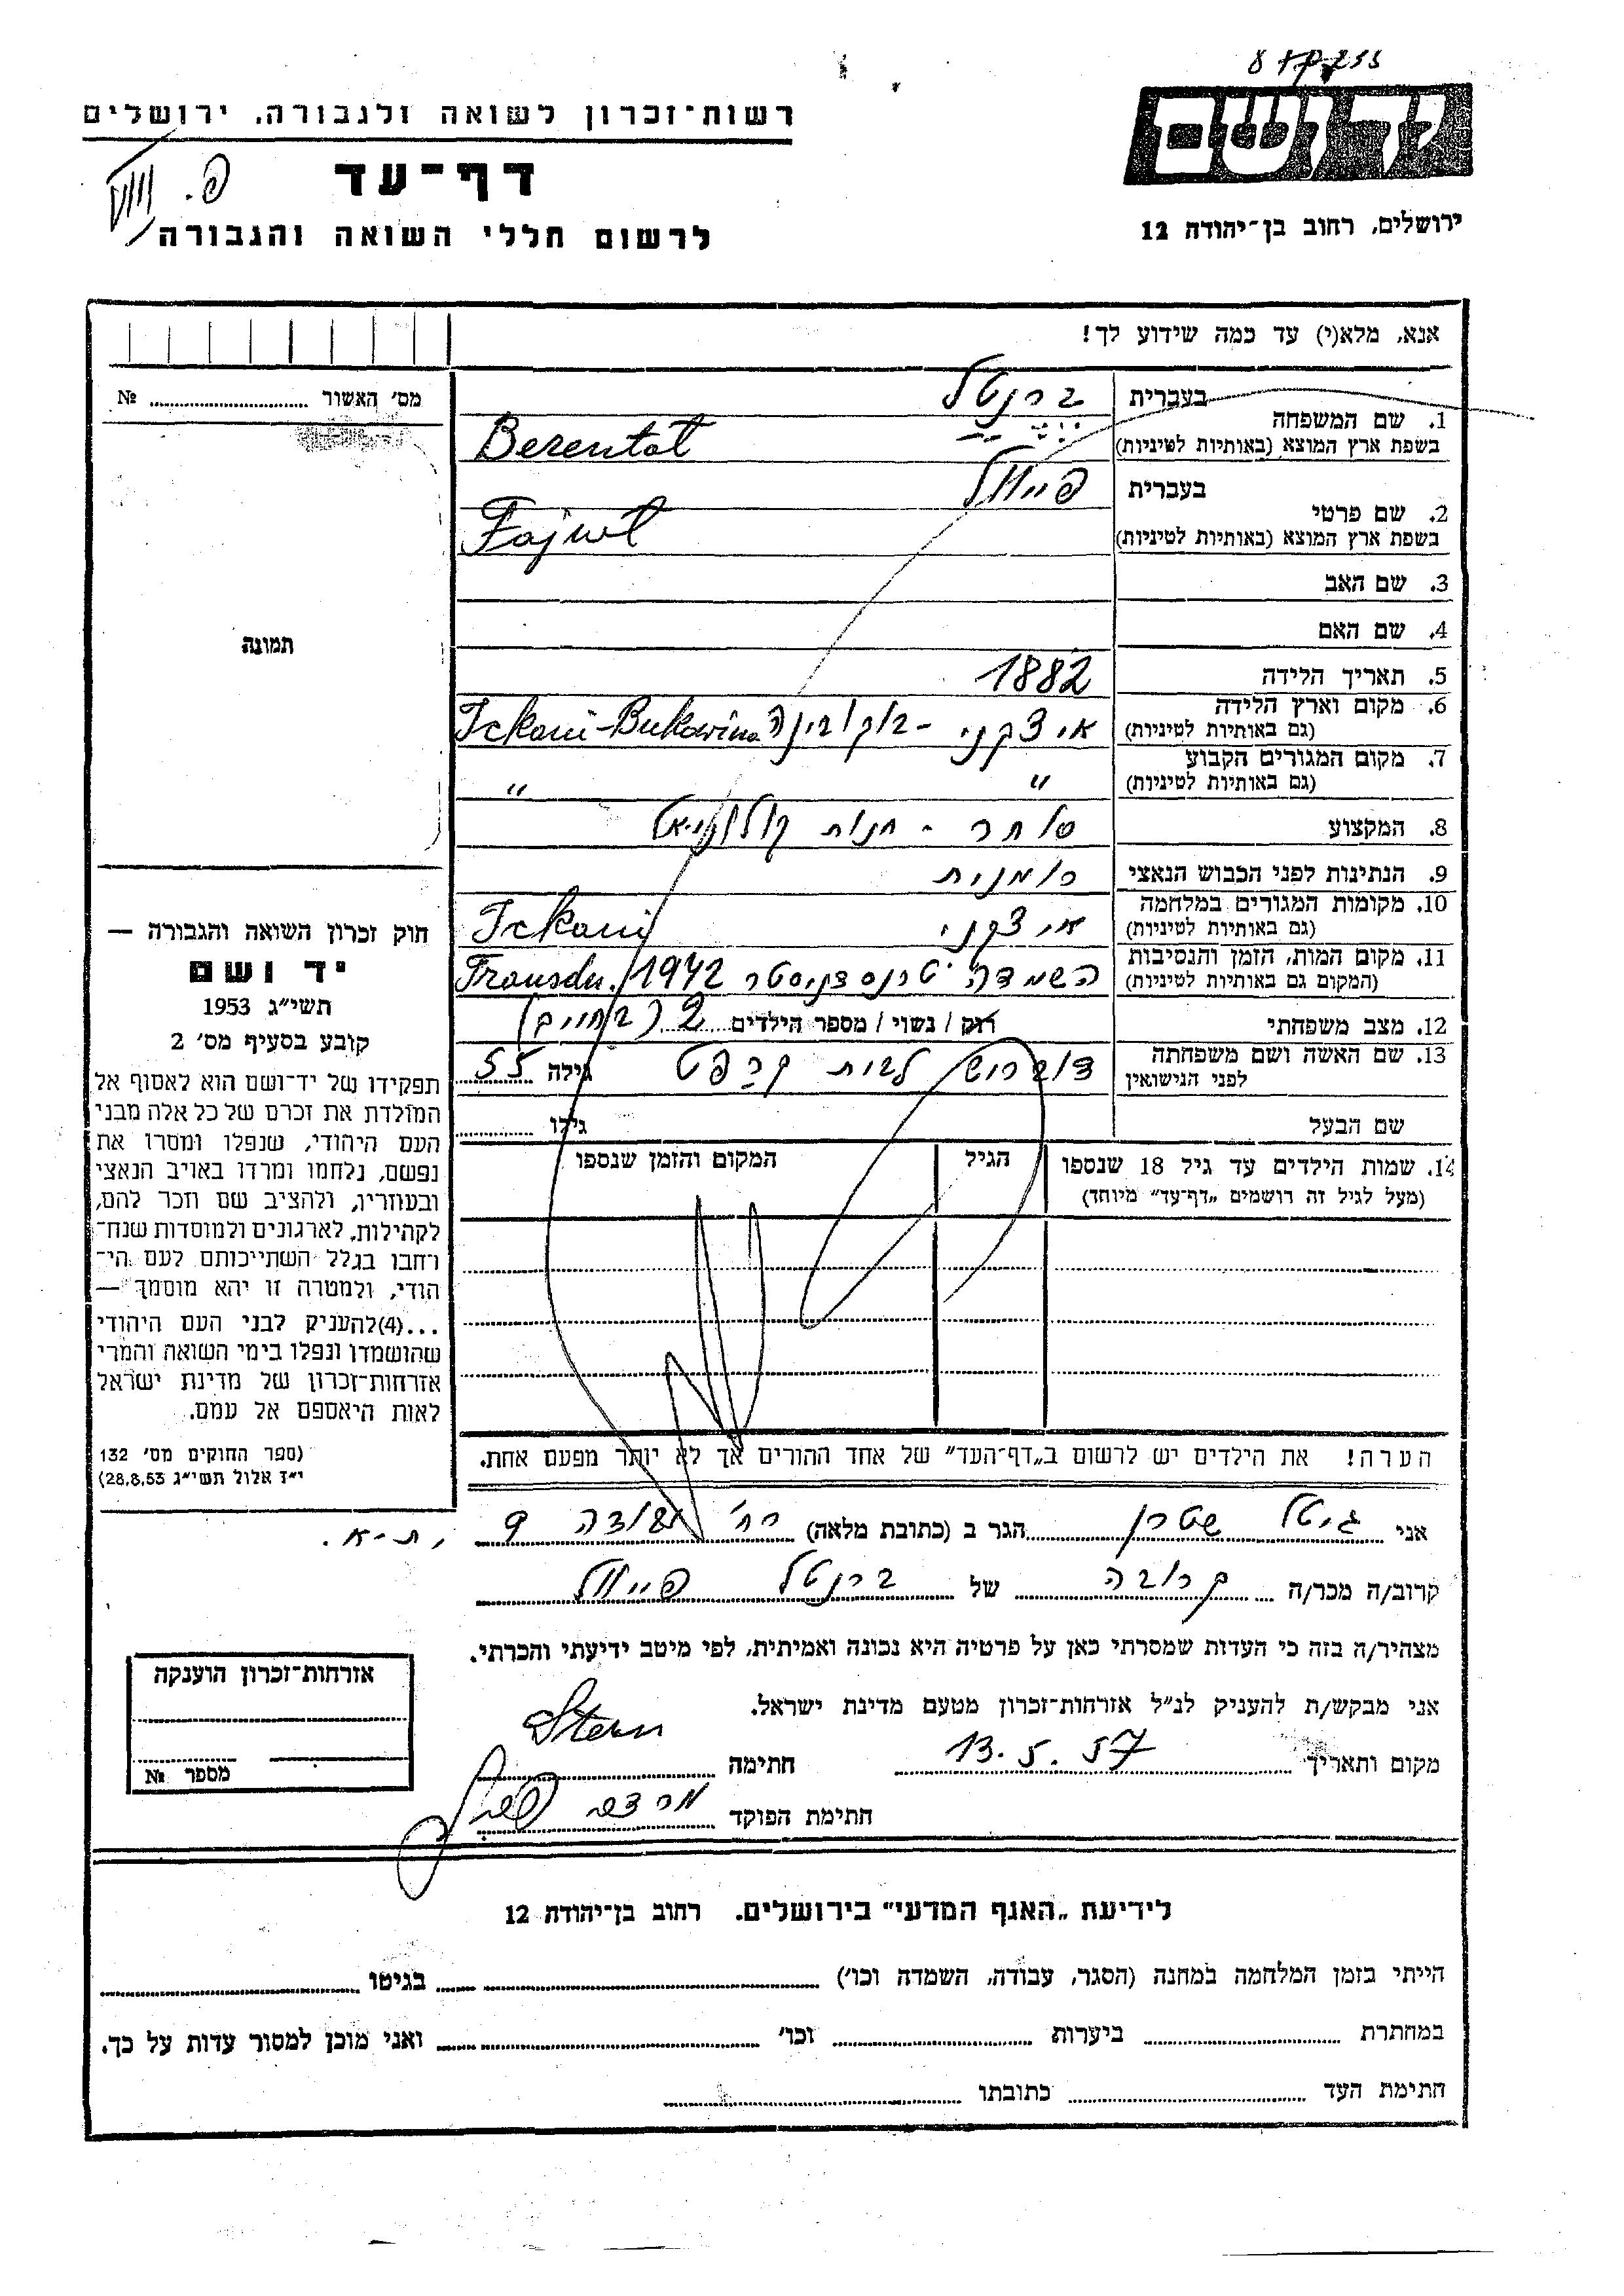 רשות־זכרון לשואה ולגבורה, ירושלים
דף־עד
לרשום חללי השואה והגבורה
ירושלים, רחוב בן־יהודה 12
אנא, מלא(י) עד כמה שידוע לך!
מס׳ האשור № 
בעברית ברנטל
1. שם המשפחה
בשפת ארץ המוצא (באותיות לטיניות) Berental
בעברית פייוול
2. שם פרטי
בשפת ארץ המוצא (באותיות לטיניות) Fajwl
3. שם האב
4. שם האם
תמונה
5. תאריך הלידה 1882
6. מקום וארץ הלידה
(גם באותיות לטיניות) איצקני - בוקובינה Ickani-Bukowina
7. מקום המגורים הקבוע
(גם באותיות לטיניות) " "
8. המקצוע סוחר - חנות
9. הנתינות לפני הכבוש הנאצי רומנית
10. מקומות המגורים במלחמה
(גם באותיות לטיניות) איצקני Ickani
11. מקום המות, הזמן והנסיבות
(המקום גם באותיות לטיניות) השמדה טרנסדניסטר 1942 Transdn.
12. מצב משפחתי רווק / נשוי / מספר הילדים 2 (בחיים)
13. שם האשה ושם משפחתה
לפני הנישואין לבית גילה 55
שם הבעל גילו
14. שמות הילדים עד גיל 18 שנספו
(מעל לגיל זה רושמים „דף־עד” מיוחד)
הגיל
המקום והזמן שנספו
הערה! את הילדים יש לרשום ב„דף־העד” של אחד ההורים אך לא יותר מפעם אחת.
חוק זכרון השואה והגבורה —
יד ושם
תשי״ג 1953
קובע בסעיף מס׳ 2
תפקידו של יד־ושם הוא לאסוף אל
המולדת את זכרם של כל אלה מבני
העם היהודי, שנפלו ומסרו את
נפשם, נלחמו ומרדו באויב הנאצי
ובעוזריו, ולהציב שם וזכר להם,
לקהילות, לארגונים ולמוסדות שנח־
רחבו בגלל השתייכותם לעם הי־
הודי, ולמטרה זו יהא מוסמך —
...(4)להעניק לבני העם היהודי
שהושמדו ונפלו בימי השואה והמרי
אזרחות־זכרון של מדינת ישראל
לאות היאספם אל עמם.
(ספר החוקים מס׳ 132
י״ד אלול תשי״ג 28.8.53)
אני גיטל שטרן הגר ב (כתובת מלאה) רח׳ 9 , ת-א.
קרוב/ה מכר/ה קרובה של ברנטל פייוול
מצהיר/ה בזה כי העדות שמסרתי כאן על פרטיה היא נכונה ואמיתית, לפי מיטב ידיעתי והכרתי.
אני מבקש/ת להעניק לנ״ל אזרחות־זכרון מטעם מדינת ישראל.
מקום ותאריך 13.5.57 חתימה Stern
חתימת הפוקד
אזרחות־זכרון הוענקה
מספר №
לידיעת „האגף המדעי” בירושלים, רחוב בן־יהודה 12
הייתי בזמן המלחמה במחנה (הסגר, עבודה, השמדה וכו׳) בגיטו
במחתרת ביערות וכו׳ ואני מוכן למסור עדות על כך.
חתימת העד כתובתו